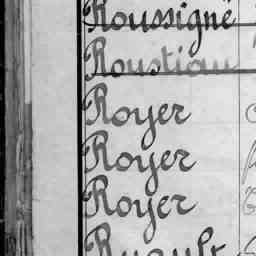 Roussigné
Roustiau
Royer
Royer
Royer
Ruault